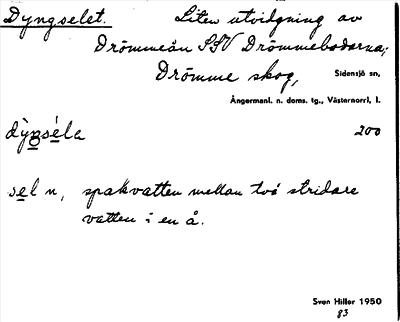 Dyngselet. Liten utvidgning av
Drömmeån SSV Drömmebodarna,
Drömme skog, Sidensjö sn,
Ångermanl. n. doms. tg., Västernorrl. l.
dỳŋséla 200
sel n, spakvatten mellan två stridare
vatten i en å.
Sven Hiller 1950
83